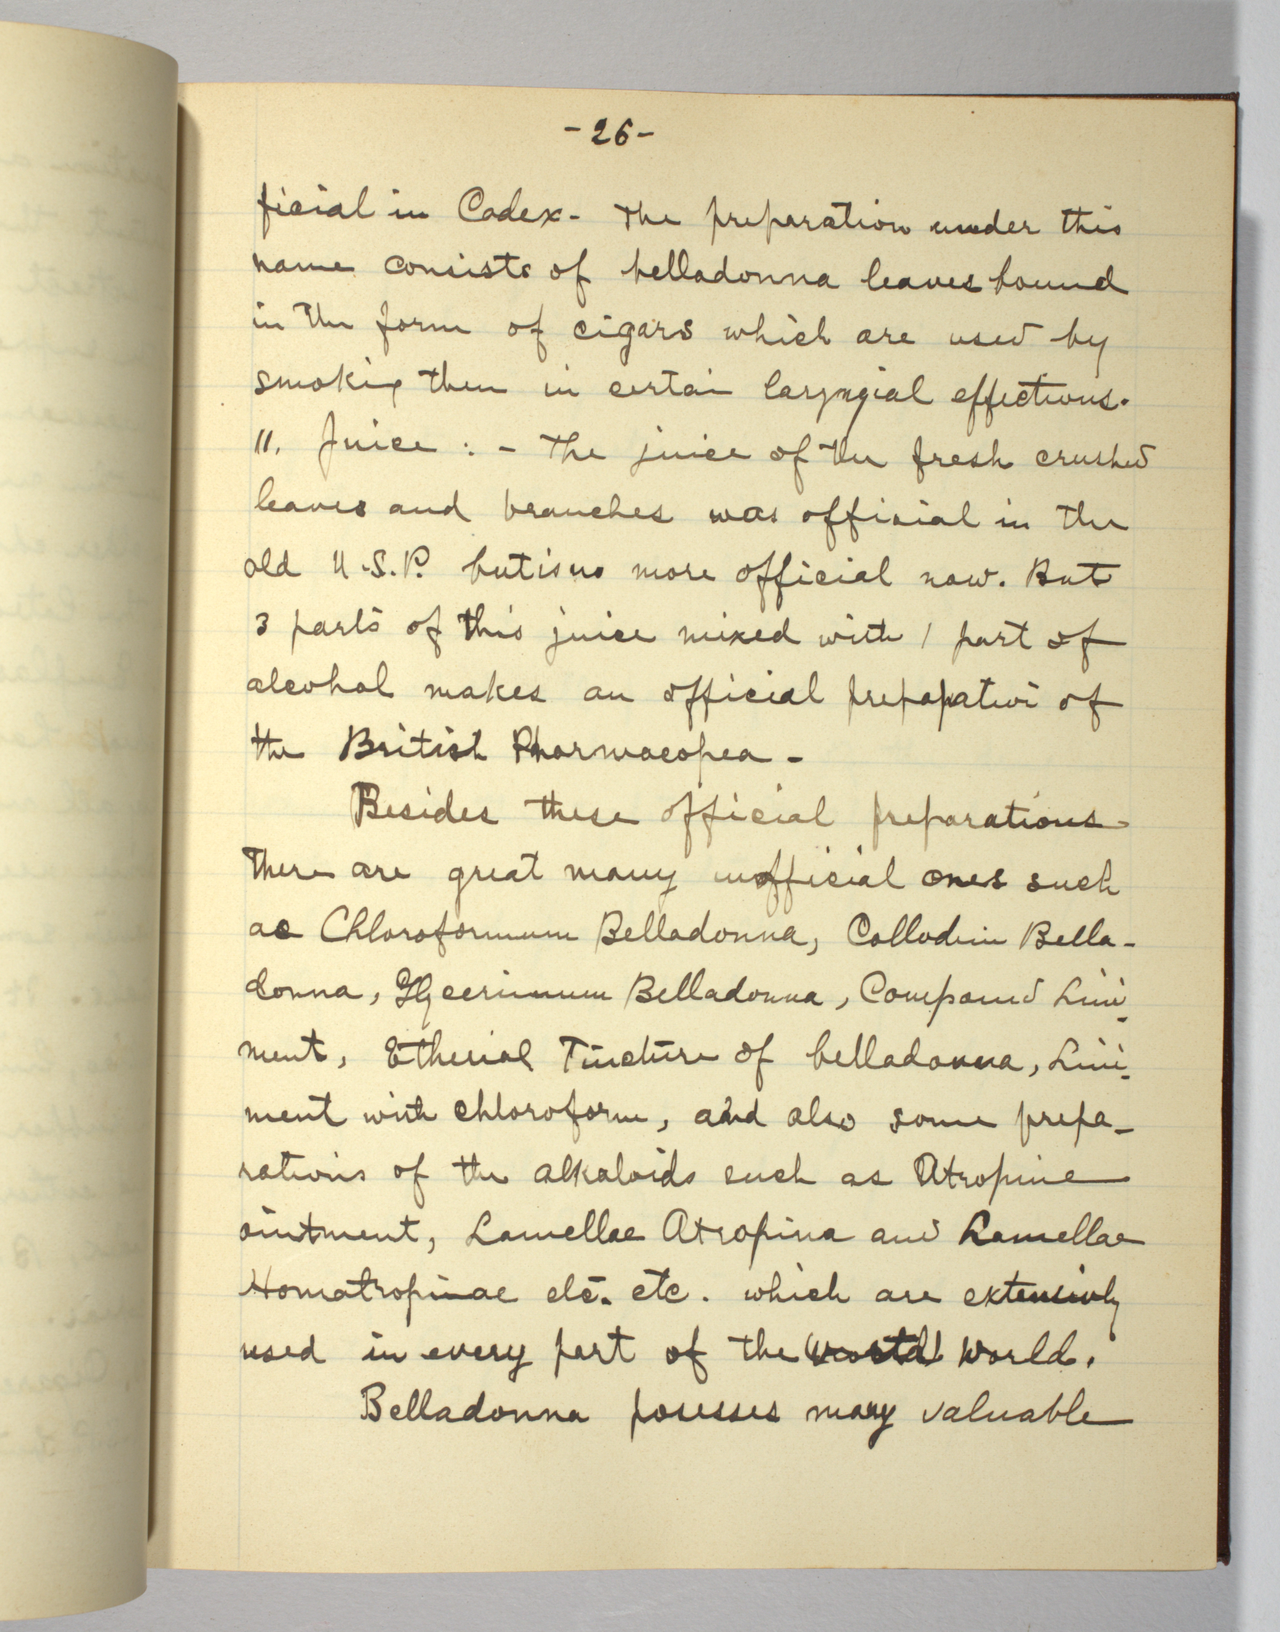 -26-
ficial in Codex- The preparation under this
name consists of belladonna leaves bound
in the form of cigars which are used by
smoking them in certain laryngial effections.
11. Juice :- The juice of the fresh crushed
leaves and branches was official in the
old U.S.P. but is no more official now. But
3 parts of this juice mixed with 1 part of
alcohol makes an official preparation of
the British Pharmacopea -
Besides these official preparations
there are great many unofficial ones such
as Chloroformum Belladonna, Collodium Bella-
donna, Glycerinum Belladonna, Compound Lini-
ment, Etherial Tincture of belladonna, Lini-
ment with chloroform, and also some prepa-
rations of the alkaloids such as Atropine
ointment, Lamellae Atropina and Lamellae
Homatropinae etc. etc. which are extensively
used in every part of the World.
Belladonna posesses many valuable